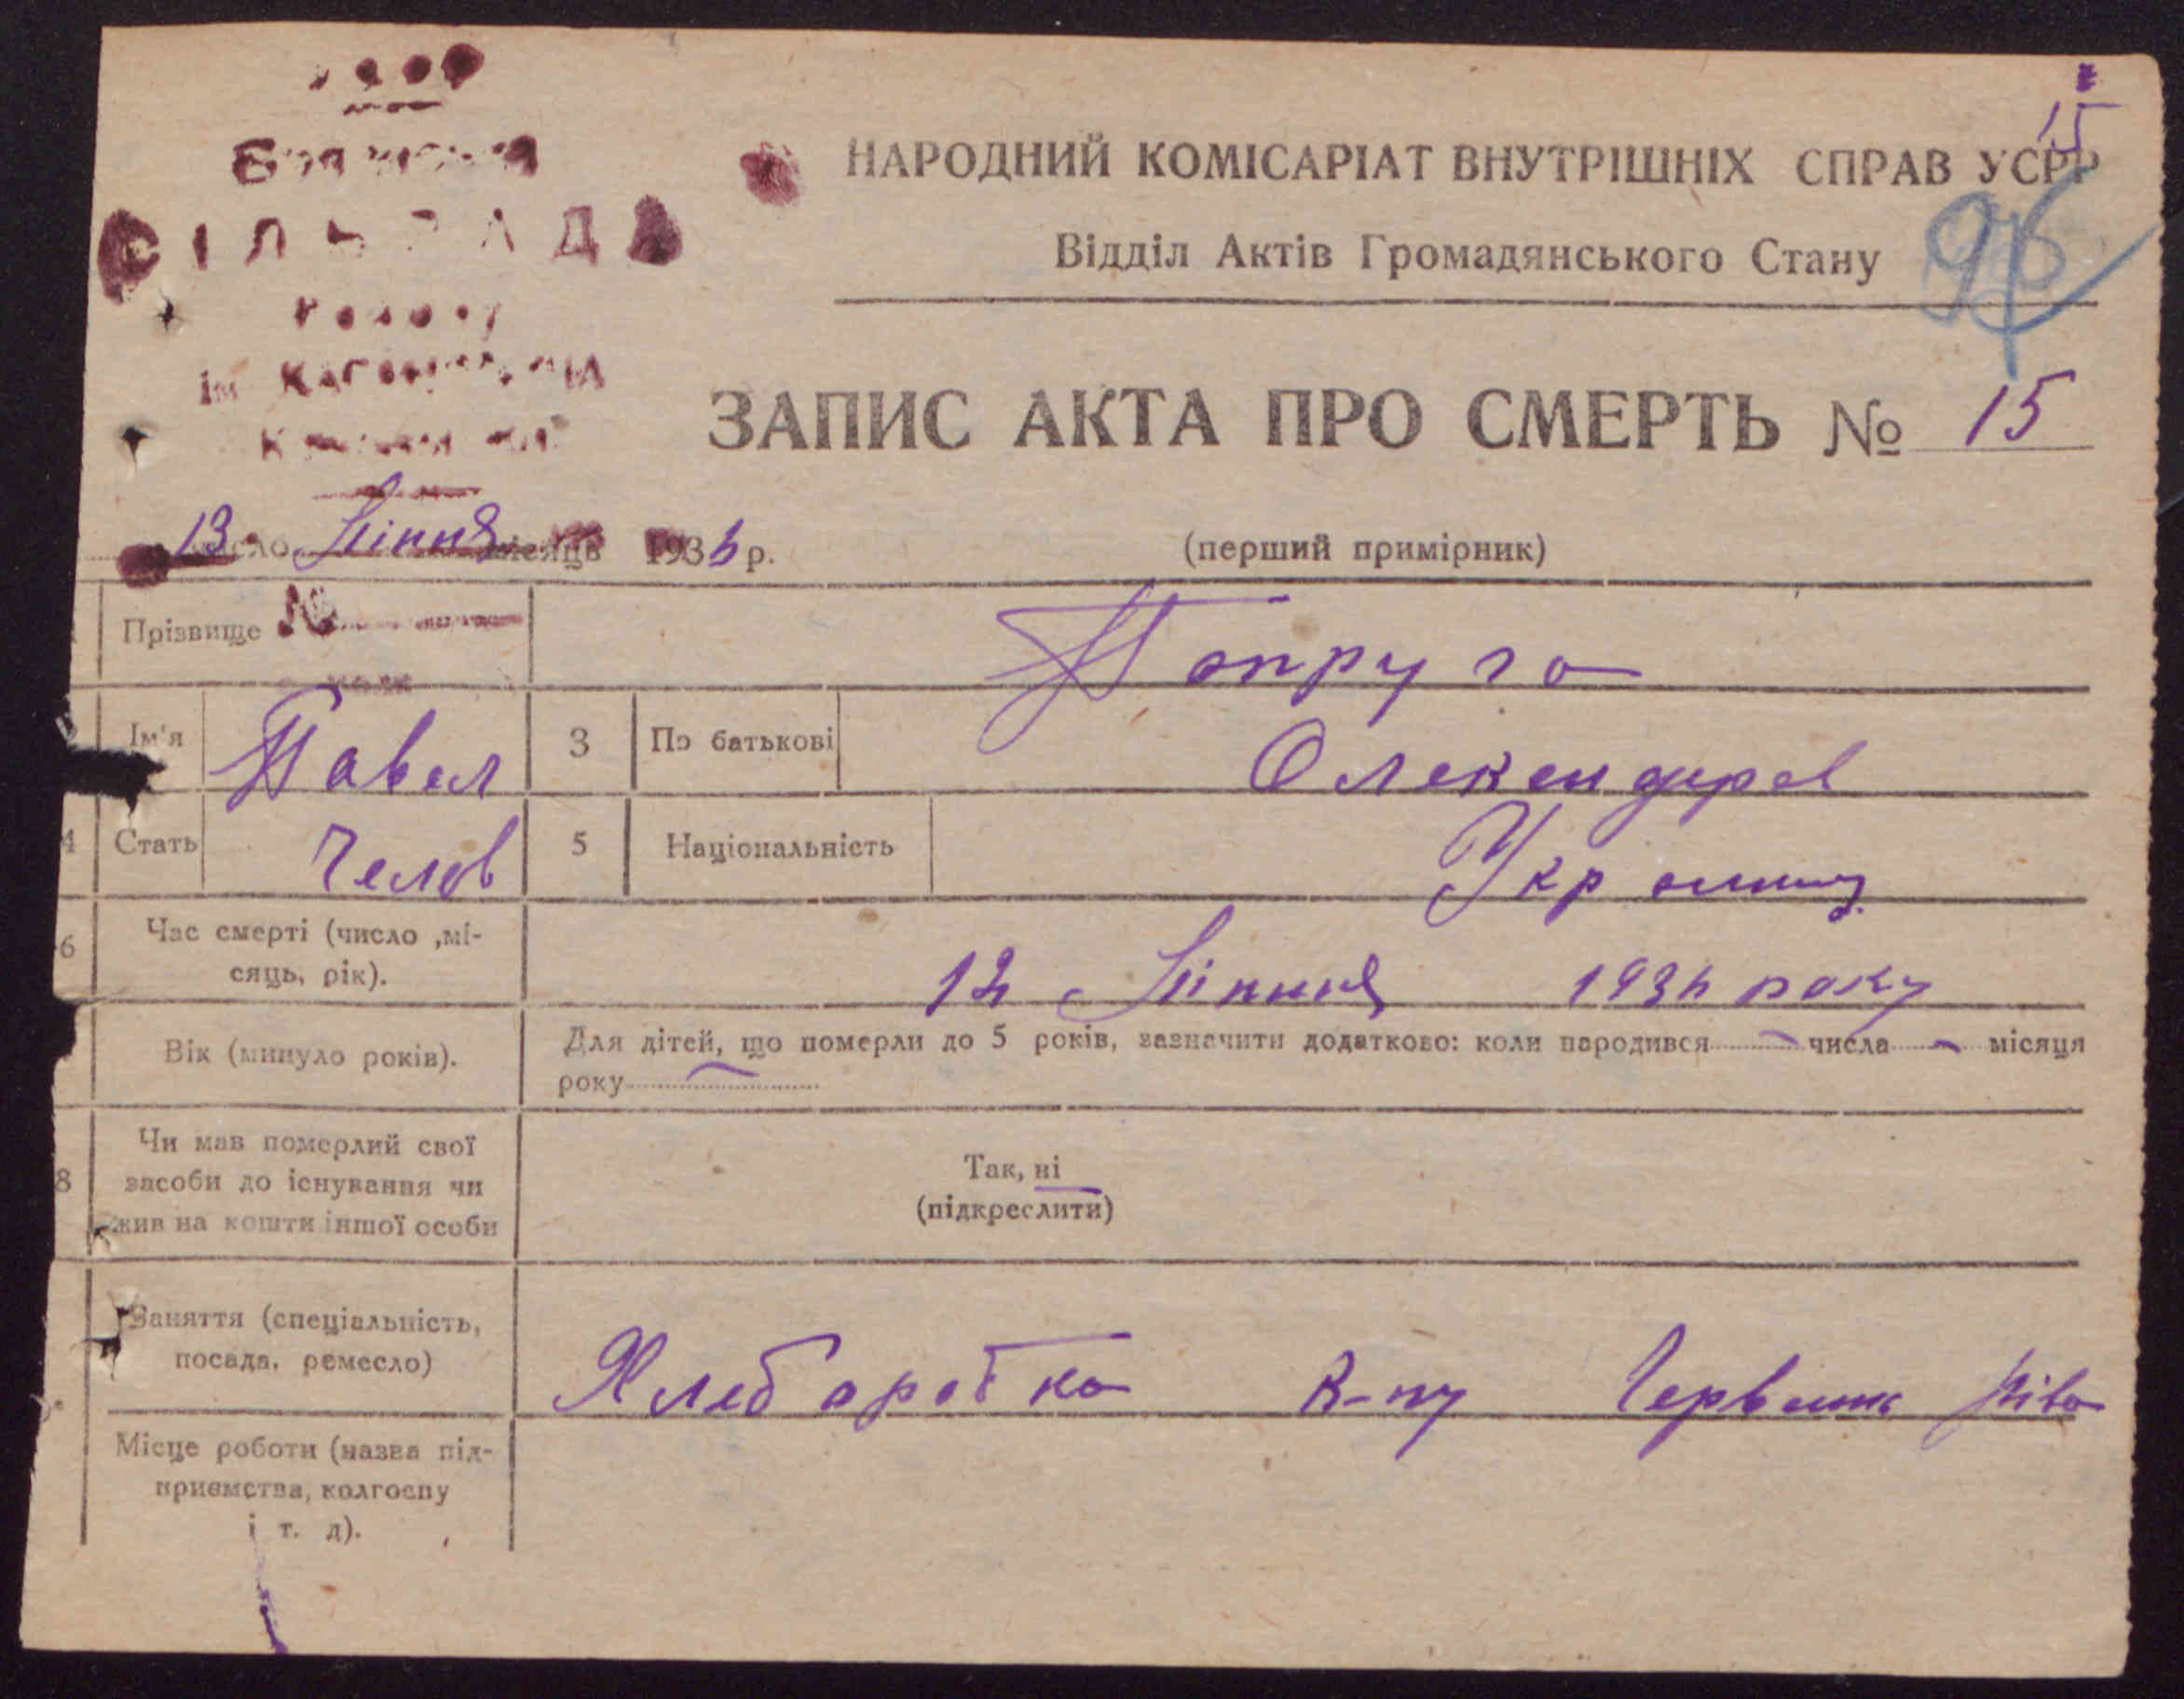 СІЛЬРАДА
ім
15
НАРОДНИЙ КОМІСАРІАТ ВНУТРІШНІХ СПРАВ УСРР
Відділ Актів Громадянського Стану
96
ЗАПИС АКТА ПРО СМЕРТЬ № 15
13 число Липня місяць 193 р.
(перший примірник)
Прізвище Попруго
Ім'я Павел 3 По батькові Олександров
4 Стать Челов 5 Національність
6 Час смерті (число ,мі-
сяць, рік).
12 Липня року
Вік (минуло років).
Для дітей, що померли до 5 років, зазначити додатково: коли народився числа місяця
року
8 Чи мав померлий свої
засоби до існування чи
жив на кошти іншої особи
Так, ні
(підкреслити)
Заняття (специіальність,
посада, ремесло)
Хлеборобка
Місце роботи (назва під-
приємства, колгоспу
і т. д).